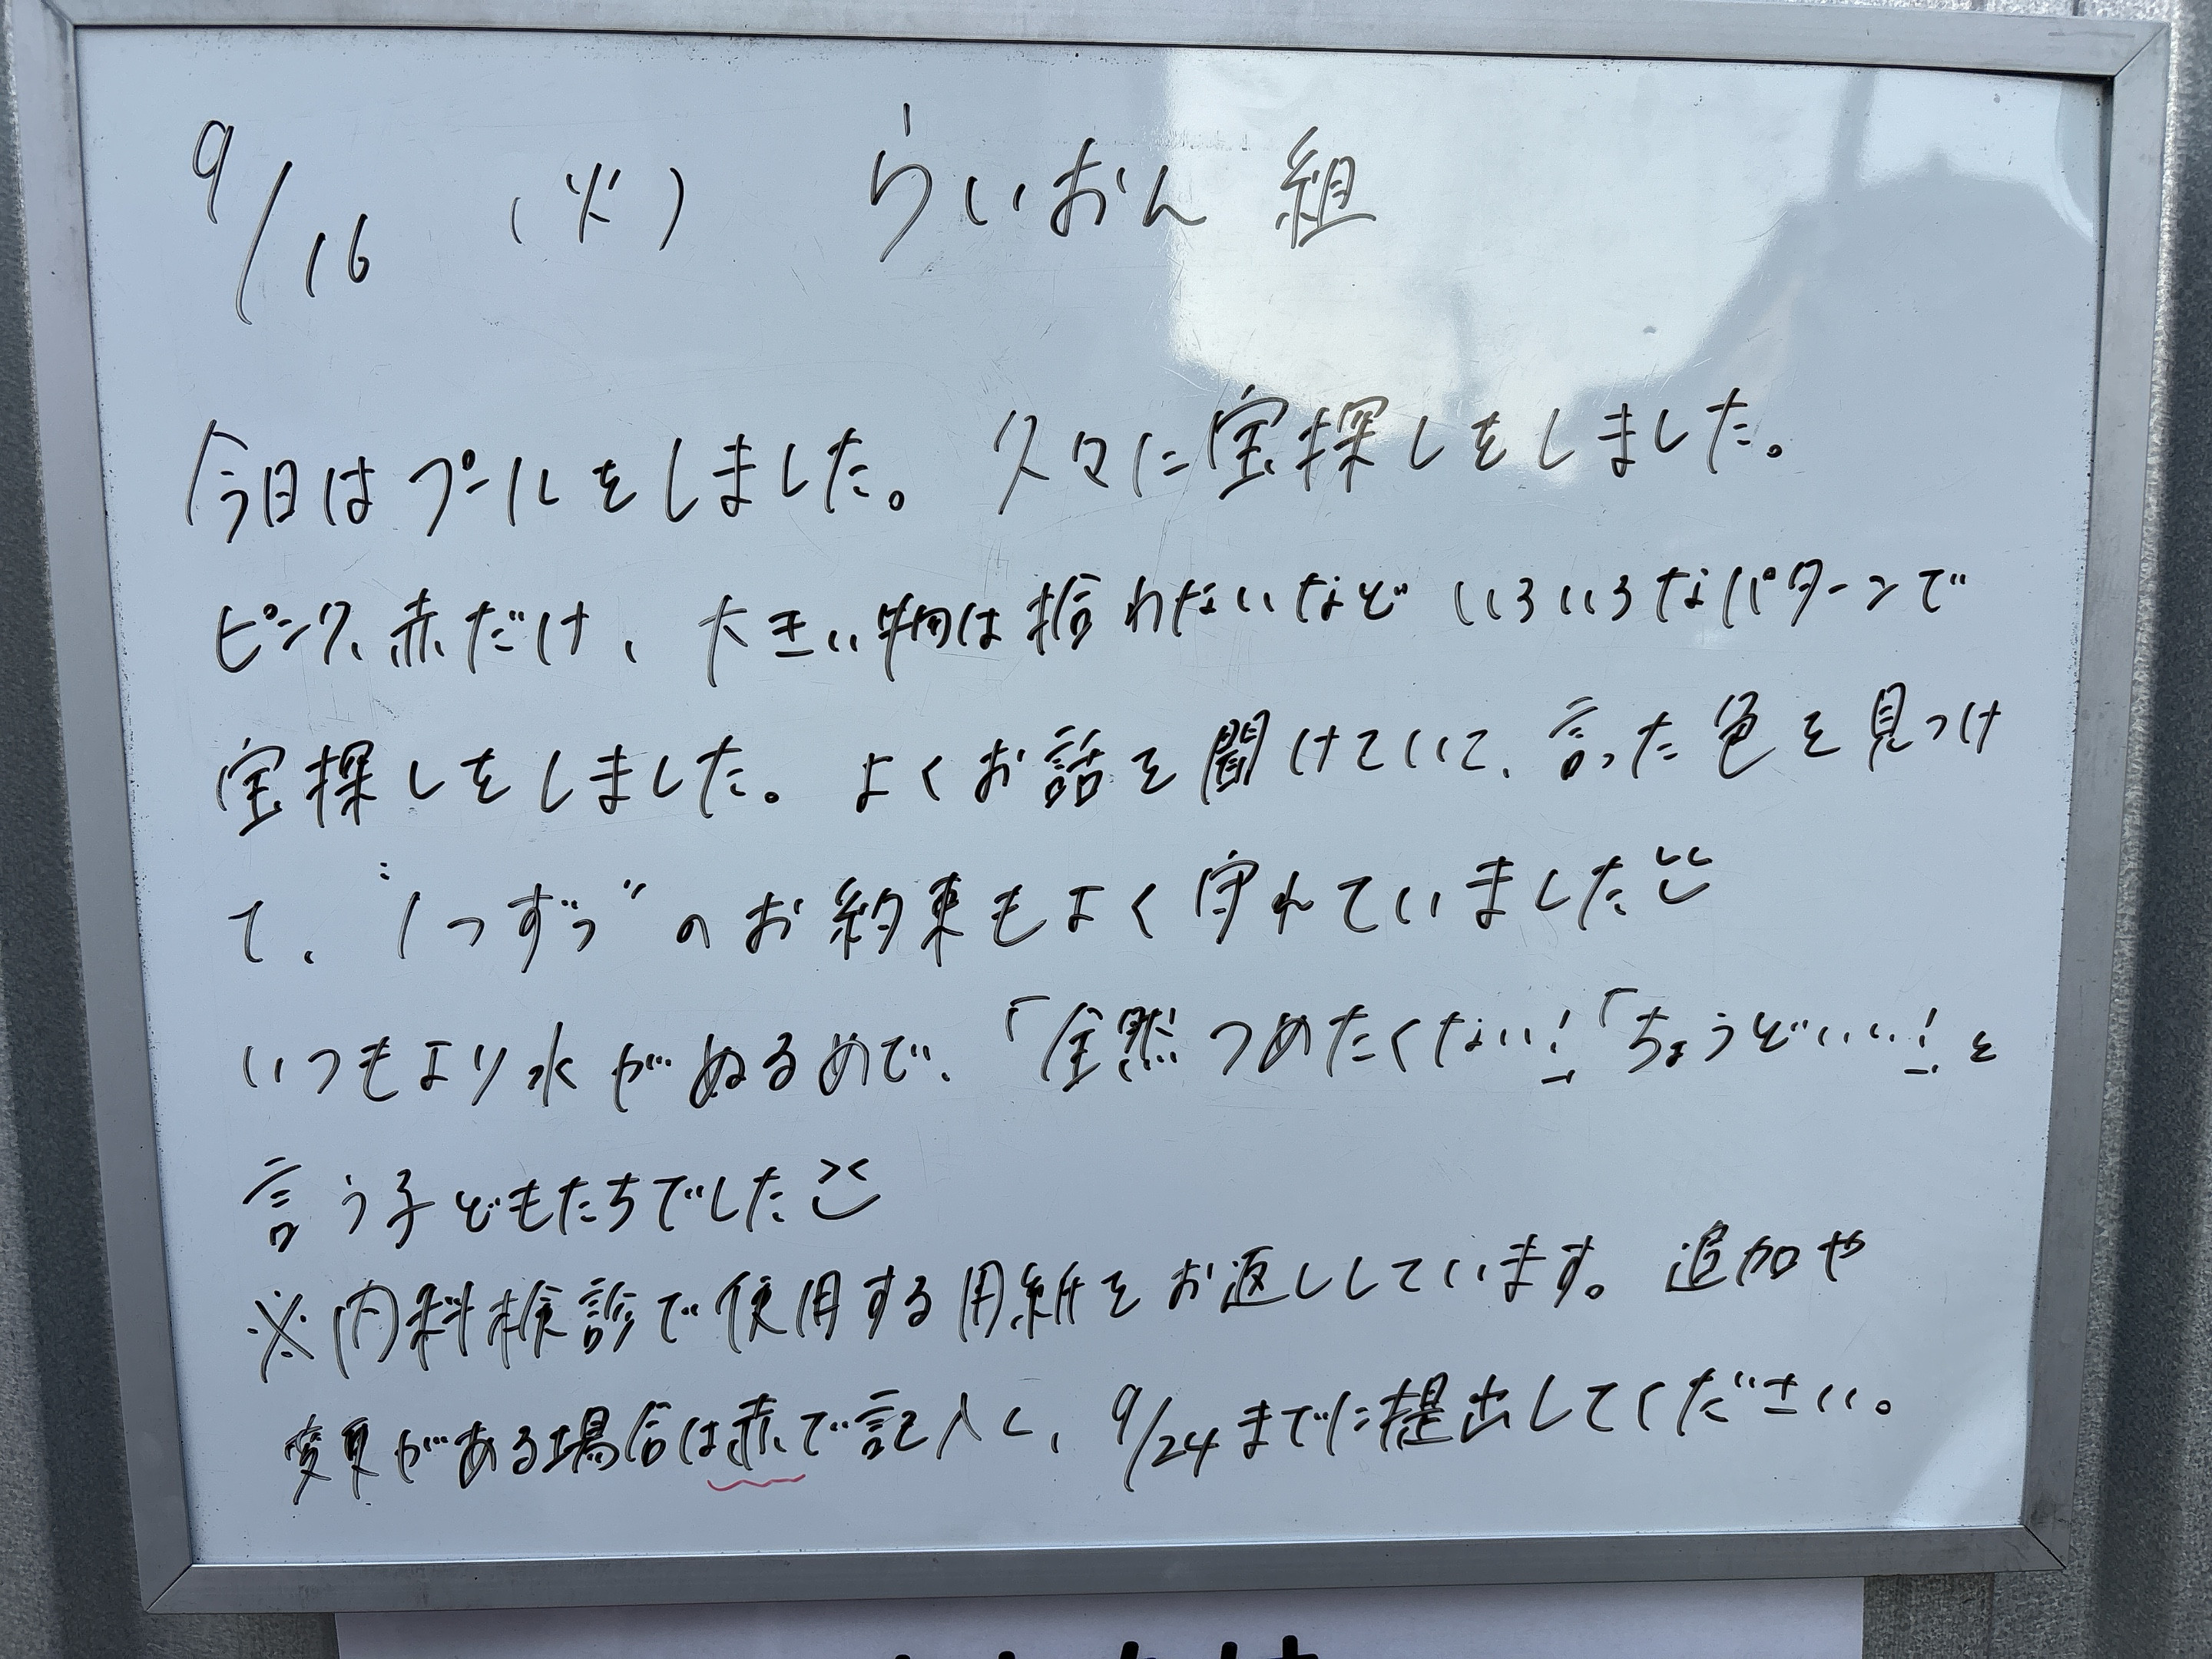 9/16 (火) らいおん組
今日はプールをしました。久々に宝探しをしました。
ピンク、赤だけ、大きい物は拾わないなど いろいろなパターンで
宝探しをしました。よくお話を聞けていて、言った色を見つけ
て、"1つずつ"のお約束もよく守れていました
いつもより水がぬるめで、「全然つめたくない!」「ちょうどいい!」と
言う子どもたちでした
※内科検診で使用する用紙をお返ししています。追加や
変更がある場合は赤で記入し、9/24までに提出してください。